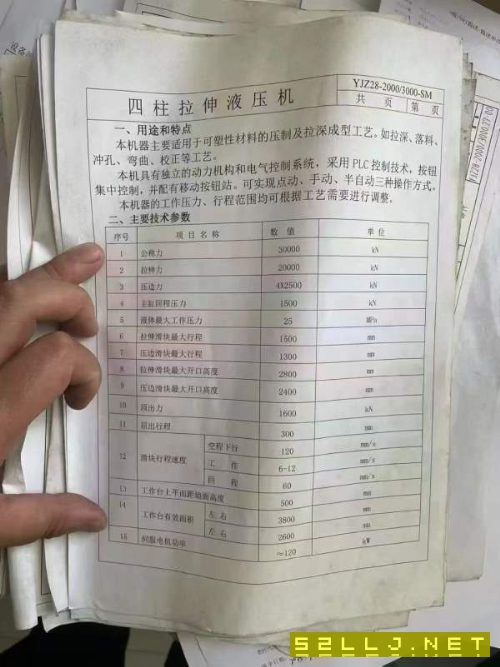 四柱拉伸液压机
YJZ28-2000/3000-SM
共 页 第 页
一、用途和特点
本机器主要适用于可塑性材料的压制及拉深成型工艺。如拉深、落料、
冲孔、弯曲、校正等工艺。
本机具有独立的动力机构和电气控制系统，采用PLC控制技术，按钮
集中控制，并配有移动按钮站。可实现点动、手动、半自动三种操作方式。
本机器的工作压力、行程范围均可根据工艺需要进行调整。
二、主要技术参数
序号 项目名称 数值 单位
1 公称力 30000 kN
2 拉伸力 20000 kN
3 压边力 4X2500 kN
4 主缸回程压力 1500 kN
5 液体最大工作压力 25 MPa
6 拉伸滑块最大行程 1500 mm
7 压边滑块最大行程 1300 mm
8 拉伸滑块最大开口高度 2800 mm
9 压边滑块最大开口高度 2400 mm
10 顶出力 1600 kN
11 顶出行程 300 mm
12 滑块行程速度 空程下行 120 mm/s
工 作 6-12 mm/s
回 程 60 mm/s
13 工作台上平面距地面高度 500 mm
14 工作台有效面积 左右 3800 mm
左右 2600 mm
15 伺服电机功率 ≈120 kW
52LLJ.NET